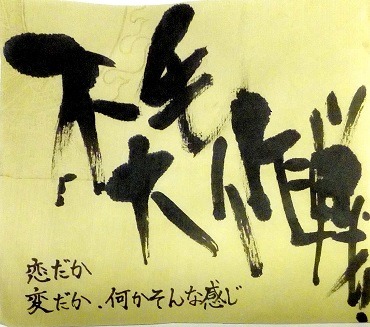 不毛大作戦
恋だか
変だか、何かそんな感じ